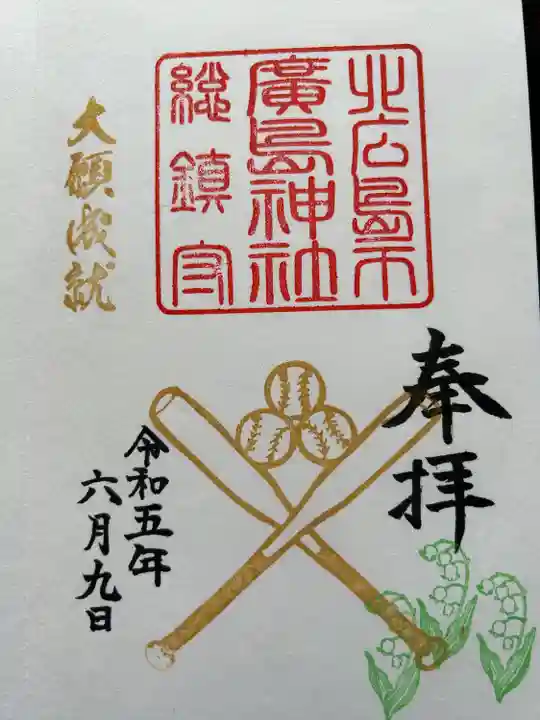 奉拝
北広島市
廣島神社
総鎮守
大願成就
令和五年
六月九日